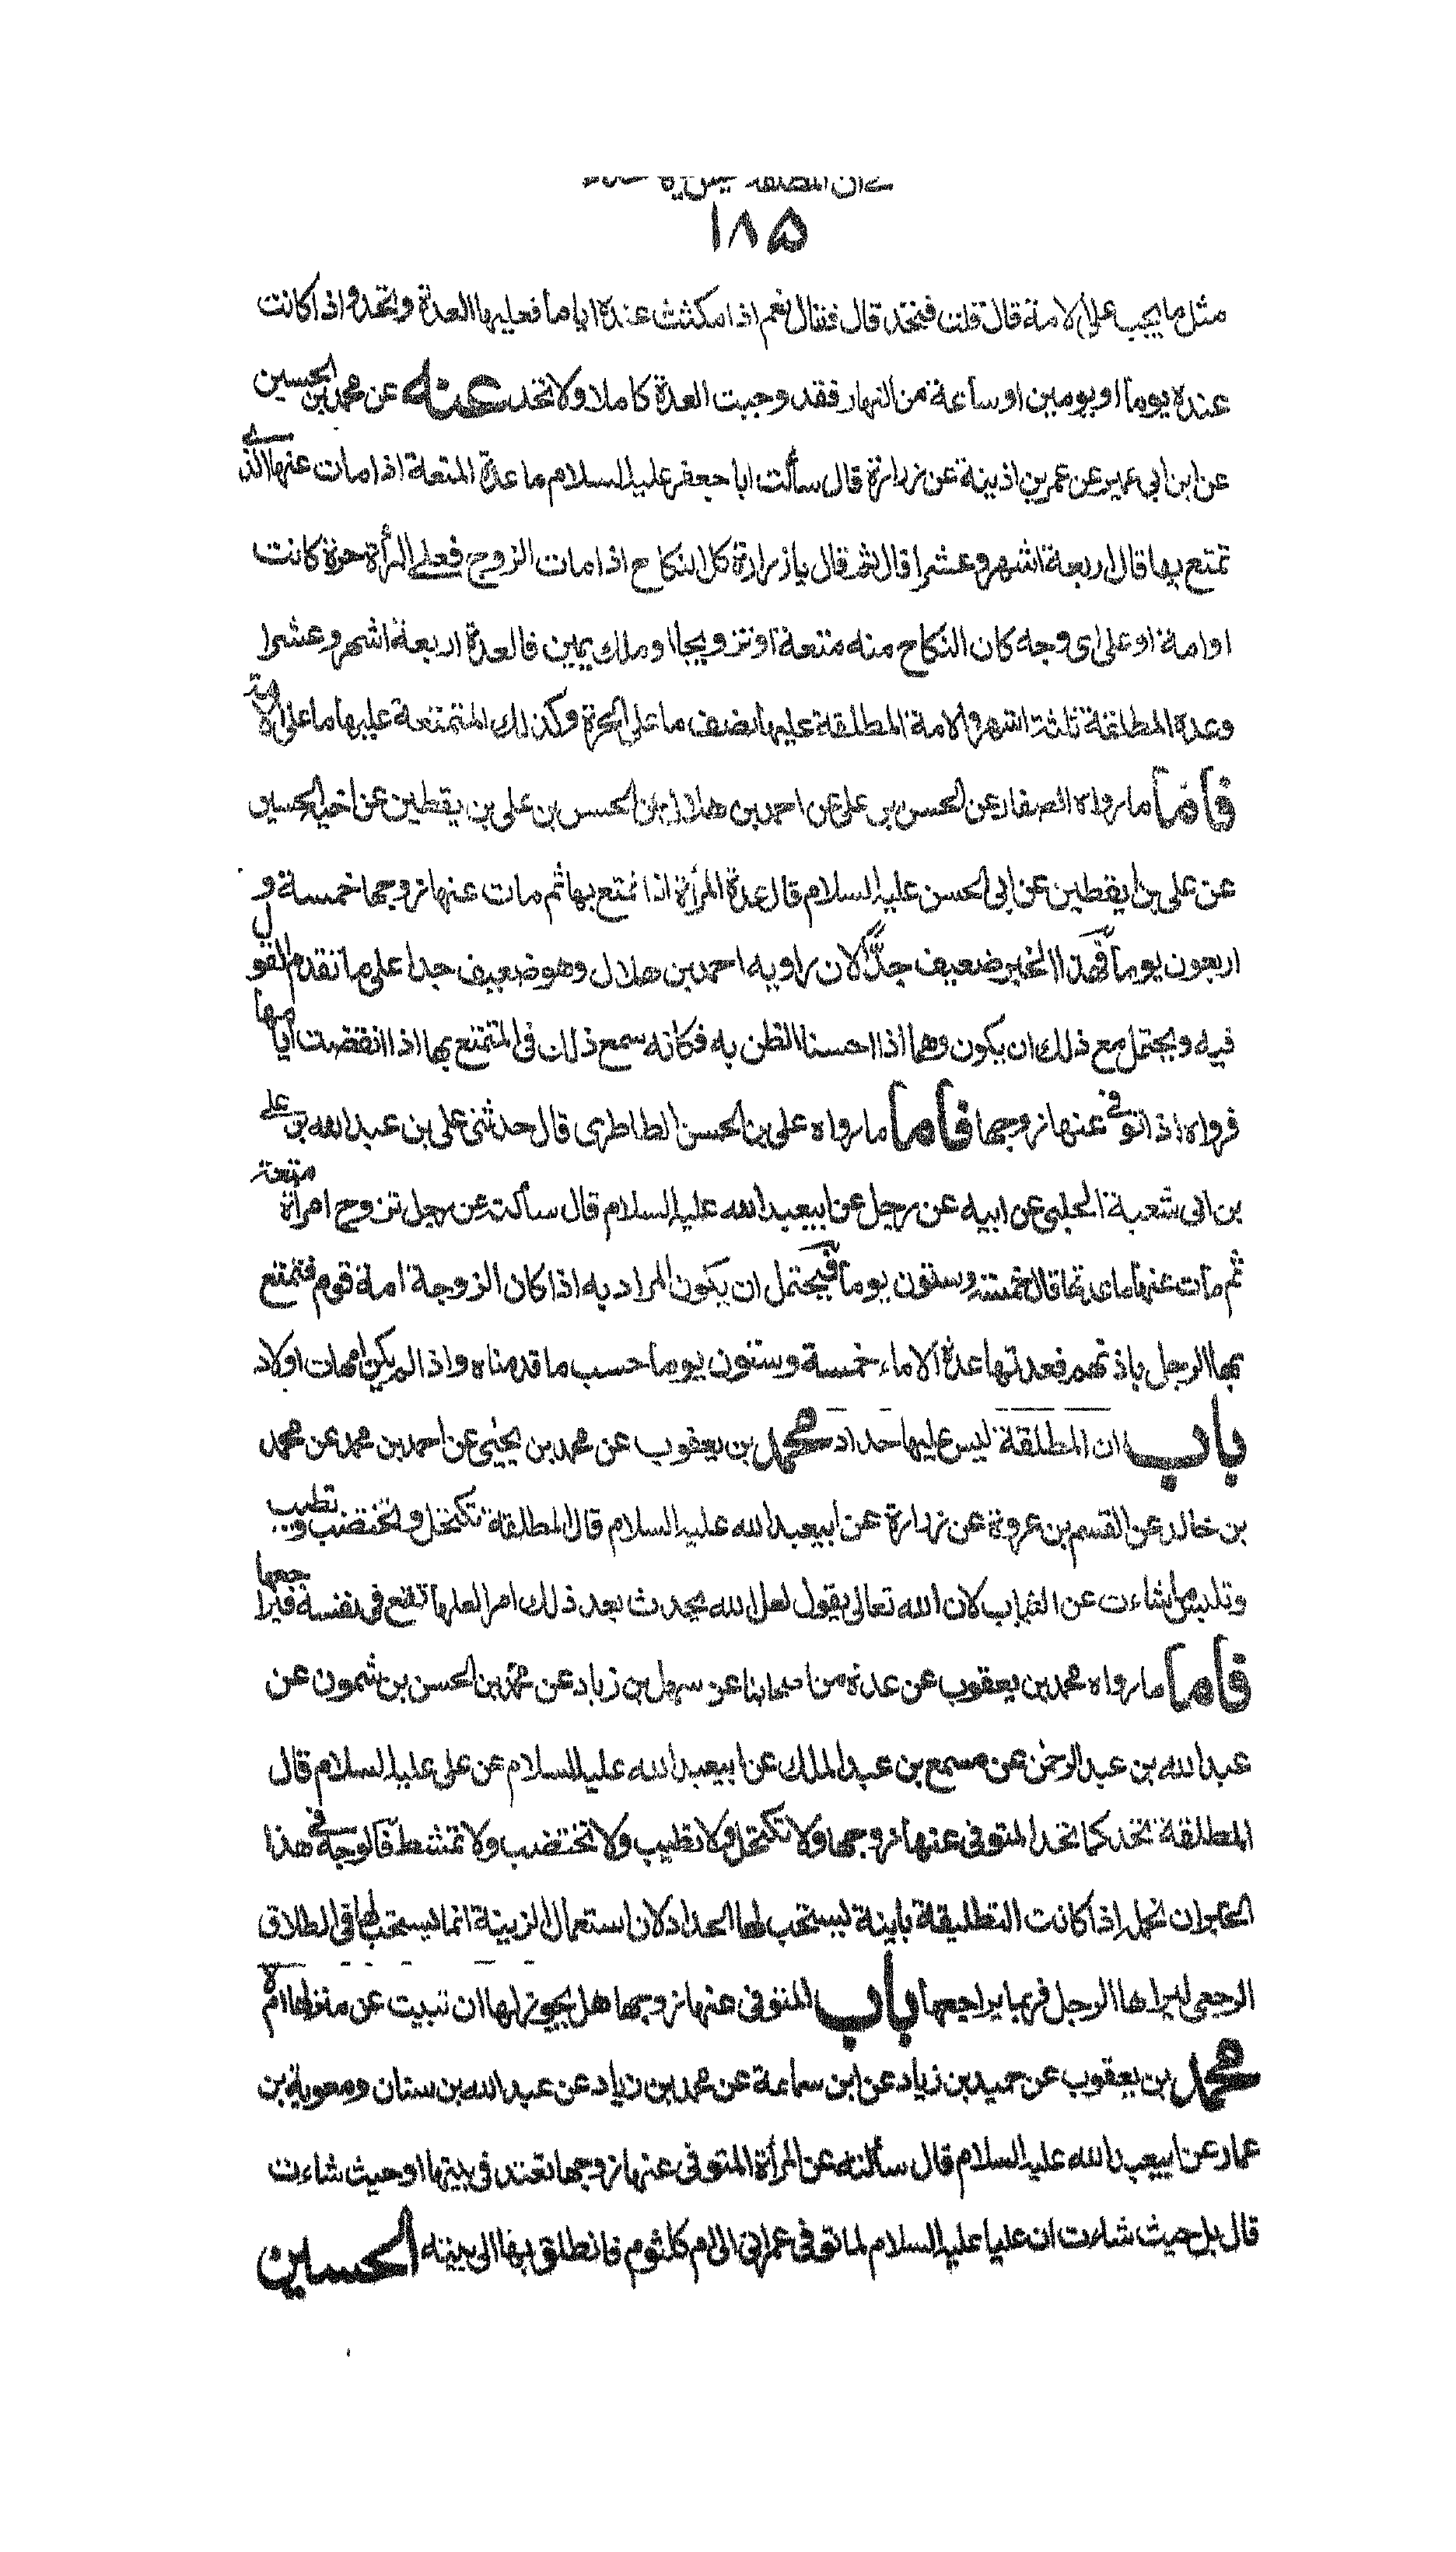 في ان المطلقة ليس عليها حداد
١٨٥
مثل ما يجب على الامة قال قلت فتحد قال فقال نعم اذا مكثت عنده اياما فعليها العدة وتحد واذا كانت
عنده يوما او يومين او ساعة من النهار فقد وجبت العدة كاملا ولا تحد عنه عن محمد بن الحسين
عن ابن ابي عمير عن عمر بن اذينة عن زرارة قال سألت ابا جعفر عليه السلام ما عدة المتعة اذا مات عنها الذي
تمتع بها قال اربعة اشهر وعشرا قال ثم قال يا زرارة كل النكاح اذا مات الزوج فعلى المرأة حرة كانت
او امة او على اى وجه كان النكاح منه متعة او تزويجا او ملك يمين فالعدة اربعة اشهر وعشرا
وعدة المطلقة ثلثة اشهر والامة المطلقة عليها نصف ما على الحرة وكذلك المتمتعة عليها ما على الامة
فاما ما رواه الصفار عن الحسن بن على عن احمد بن هلال عن الحسن بن على بن يقطين عن اخيه الحسين
عن على بن يقطين عن ابى الحسن عليه السلام قال عدة المرأة اذا تمتع بها ثم مات عنها زوجها خمسة و
اربعون يوما فهذا الخبر ضعيف جدّا لان راويه احمد بن هلال وهو ضعيف جدا على ما تقدم القول
فيه ويحتمل مع ذلك ان يكون وهما اذا احسنا الظن به فكانه سمع ذلك في المتمتع بها اذا انقضت ايامها
فرواه اذا توفى عنها زوجها فاما ما رواه على بن الحسن الطاطرى قال حدثنى على بن عبد الله بن على
بن ابى شعبة الحلبى عن ابيه عن رجل عن ابيعبد الله عليه السلام قال سألته عن رجل تزوج امرأة متعة
ثم مات عنها ما عدتها قال خمسة وستون يوما فيحتمل ان يكون المراد به اذا كان الزوجة امة قوم فتمتع
بها الرجل باذنهم فعدتها عدة الاماء خمسة وستون يوما حسب ما قدمناه واذا لم يكن امهات اولاد
باب ان المطلقة ليس عليها حداد محمد بن يعقوب عن محمد بن يحيى عن احمد بن محمد عن محمد
بن خالد عن القسم بن عروة عن زرارة عن ابيعبد الله عليه السلام قال المطلقة تكتحل وتختضب وتطيب
وتلبس ما شاءت عن الثياب لان الله تعالى يقول لعل الله يحدث بعد ذلك امرا لعلها تقع في نفسه فيراجعها
فاما ما رواه محمد بن يعقوب عن عدة من اصحابنا عن سهل بن زياد عن محمد بن الحسن بن شمون عن
عبد الله بن عبد الرحمن عن مسمع بن عبد الملك عن ابيعبد الله عليه السلام عن على عليه السلام قال
المطلقة تحد كما تحد المتوفى عنها زوجها ولا تكتحل ولا تطيب ولا تختضب ولا تمتشط فالوجه في هذا
الخبر ان نحمله اذا كانت التطليقة باينة ليستحب لها الحداد لان استعمال الزينة انما يستحب لها في الطلاق
الرجعى ليراها الرجل فربما يراجعها باب المتوفى عنها زوجها هل يجوز لها ان تبيت عن منزلها ام لا
محمد بن يعقوب عن حميد بن زياد عن ابن سماعة عن محمد بن زياد عن عبد الله بن سنان ومعوية بن
عمار عن ابيعبد الله عليه السلام قال سألته عن المرأة المتوفى عنها زوجها تعتد في بيتها او حيث شاءت
قال بل حيث شاءت ان عليا عليه السلام لما توفى عمر اتى الى ام كلثوم فانطلق بها الى بيته الحسين